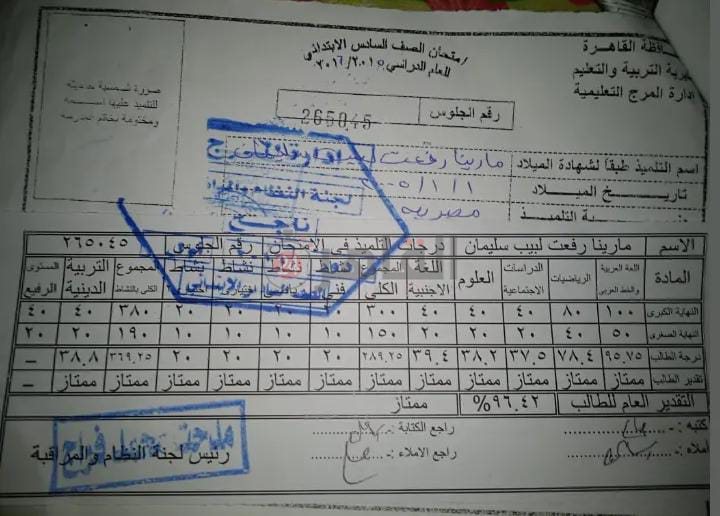 ـافظة القاهرة
ـيرية التربية والتعليم
إدارة المرج التعليمية
امتحان الصف السادس الابتدائى
للعام الدراسى ٢٠١٦/٢٠١٥
صورة شمسية حديثة
للتلميذ طبقا
ومختومة بخاتم المدرسة
رقم الجلوس 265045
اسم التلميذ طبقا لشهادة الميلاد مارينا رفعت
تاريـــخ الميـــلاد
ـية التلميـذ مصريه
لجنة النظام والمراقبة
ناجح
الاسم مارينا رفعت لبيب سليمان درجات التلميذ فى الامتحان رقم الجلوس ٢٦٥٠٤٥
المادة اللغة العربية والخط العربى الرياضيات الدراسات الاجتماعية العلوم اللغة الاجنبية المجموع الكلى نشاط فنى نشاط نشاط نشاط المجموع الكلى بالنشاط التربية الدينية المستوى الرفيع
النهاية الكبرى ١٠٠ ٨٠ ٤٠ ٤٠ ٤٠ ٣٠٠ ٢٠ ٢٠ ٢٠ ٢٠ ٣٨٠ ٤٠ ٤٠
النهاية الصغرى ٥٠ ٤٠ ٢٠ ٢٠ ٢٠ ١٥٠ ١٠ ١٠ ١٠ ١٠ ١٩٠ ٢٠ ٢٠
درجة الطالب ٩٥.٧٥ ٧٨.٤ ٣٧.٥ ٣٨.٢ ٣٩.٤ ٢٨٩.٢٥ ٢٠ ٢٠ ٢٠ ٢٠ ٣٦٩.٢٥ ٣٨.٨ –
تقدير الطالب ممتاز ممتاز ممتاز ممتاز ممتاز ممتاز ممتاز ممتاز ممتاز ممتاز ممتاز ممتاز –
التقدير العام للطالب ٩٦.٤٢% ممتاز
كتبه :- راجع الكتابة :-
أملاه :- راجع الاملاء :- رئيس لجنة النظام والمراقبة